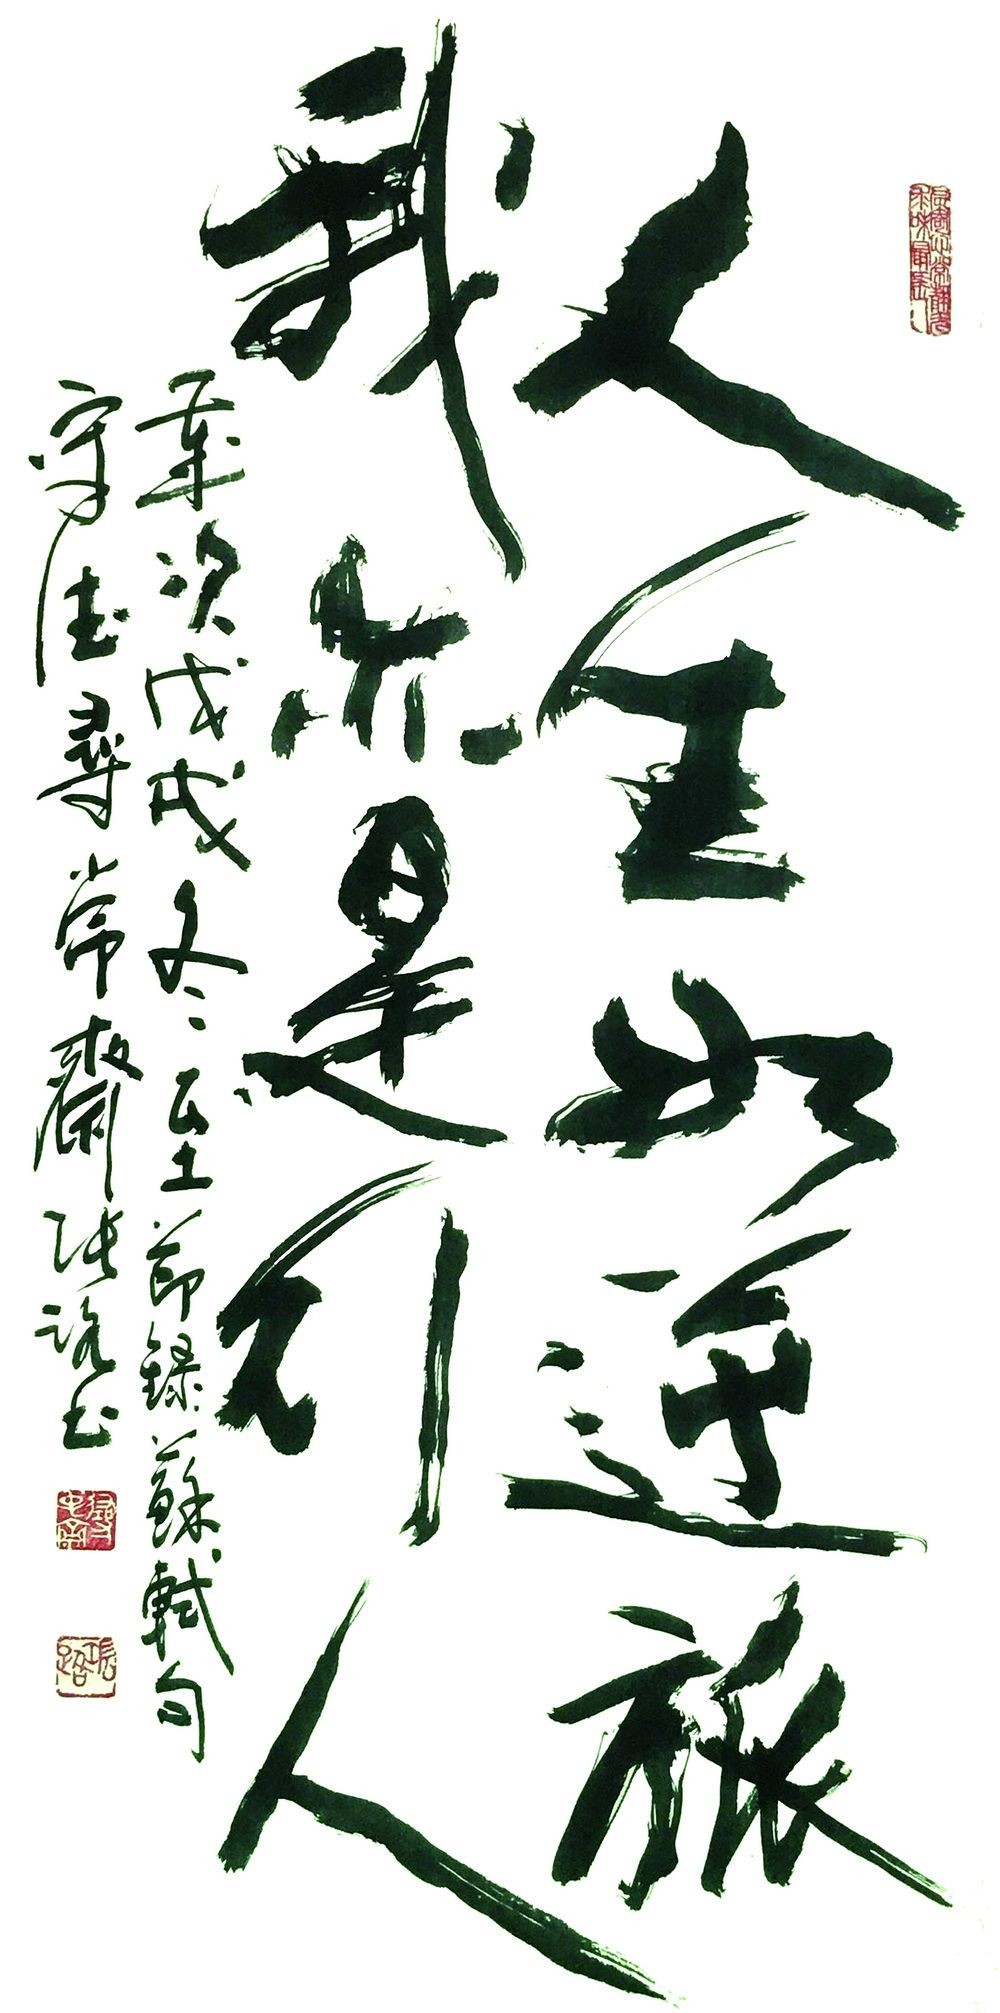 人生如逆旅
我亦是行人
歲次戊戌冬至節錄蘇軾句
守尋常齋張书